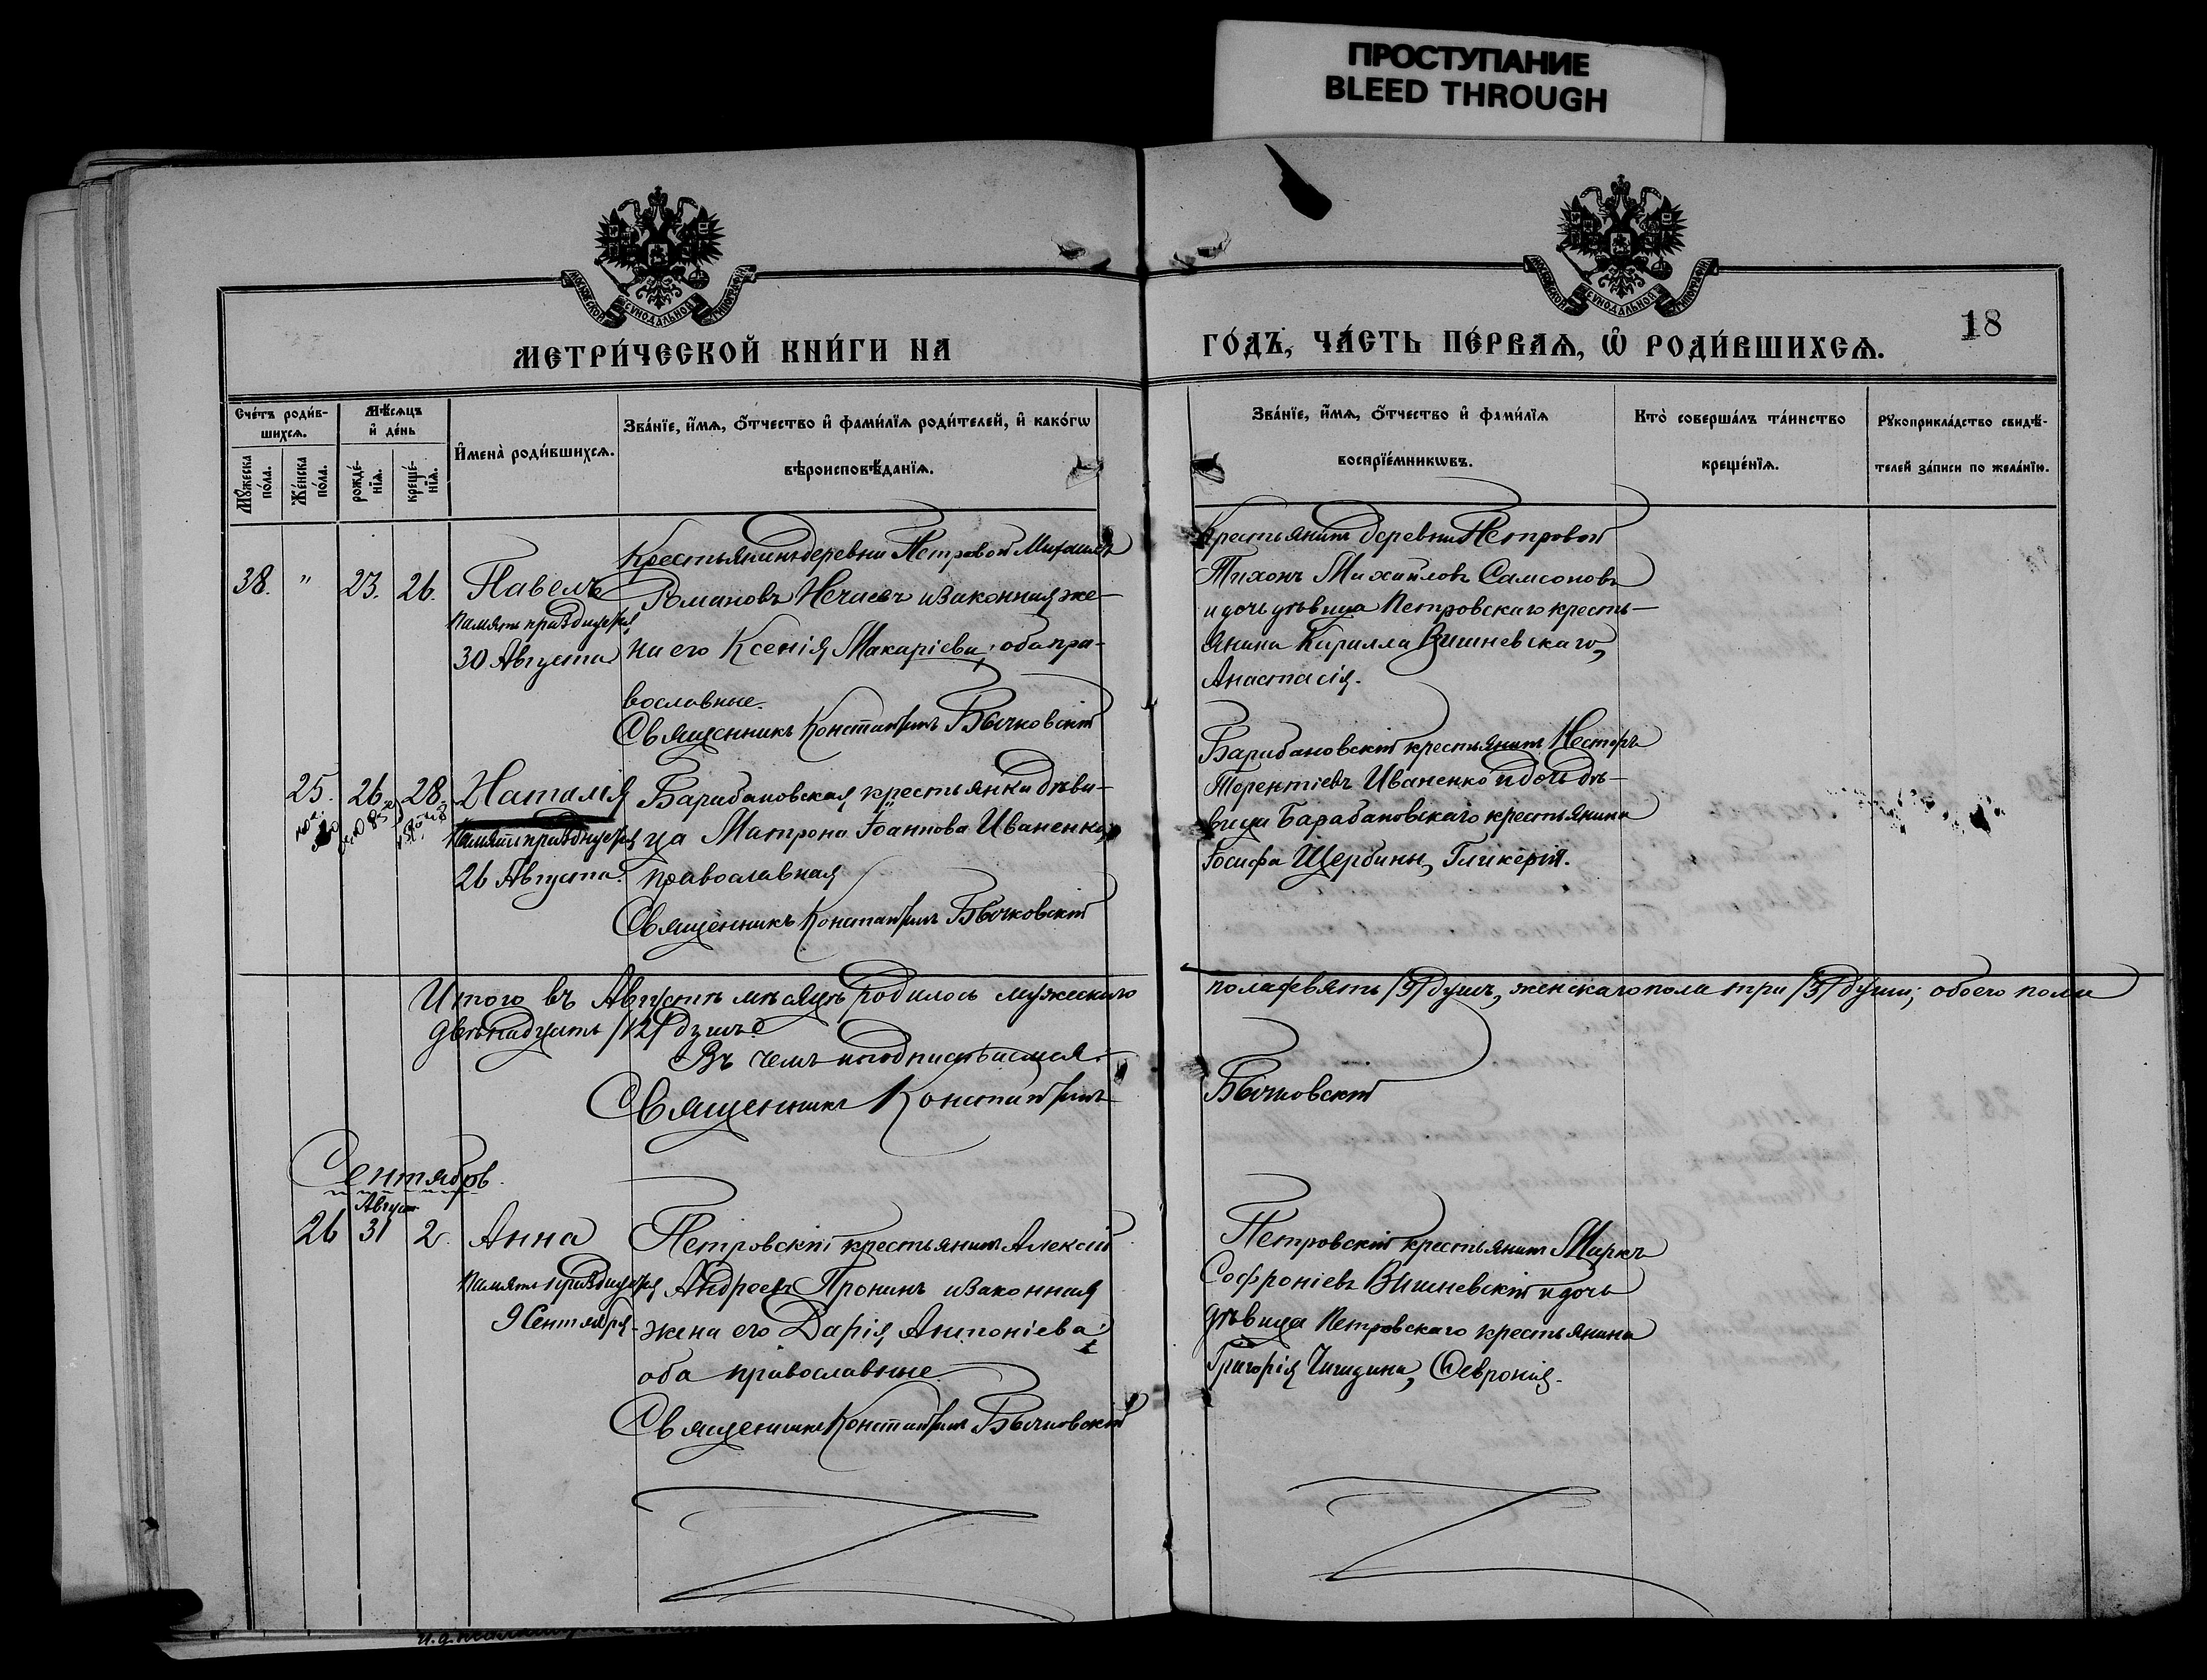 ПРОСТУПАНИЕ
BLEED THROUGH
МОСКОВСКОЙ СѴНОДАЛЬНОЙ ТИПОГРАФІИ
МОСКОВСКОЙ СѴНОДАЛЬНОЙ ТИПОГРАФІИ
18
МЕТРИ́ЧЕСКОЙ КНИ́ГИ НА
ГО́ДЪ, ЧА́СТЬ ПЕ́РВАѦ, Ѡ҆ РОДИ́ВШИХСѦ.
Сче́тъ роди́в-
шихсѧ.
Мꙋ́жеска по́ла.
Же́нска по́ла.
Мѣ́сѧцъ
и҆ де́нь
рожде́-
нїѧ.
креще́-
нїѧ.
И҆мена̀ роди́вшихсѧ.
Зва́нїе, и҆́мѧ, ѻ҆́тчество и҆ фами́лїѧ роди́телей, и҆ како́гѡ
вѣроисповѣ́данїѧ.
Зва́нїе, и҆́мѧ, ѻ҆́тчество и҆ фами́лїѧ
воспрїе́мникѡвъ.
Кто̀ соверша́лъ та́инство
креще́нїѧ.
Рꙋкоприкла́дство свидѣ́-
телей за́писи по жела́нїю.
38. " 23. 26. Павелъ
Память празднуется
30 Августа
Крестьянинъ деревни Петровой Михаилъ
Романовъ Нечаевъ и законная же-
на его Ксенія Макаріева; оба пра-
вославные.
Священникъ Константинъ Бычковскій
Крестьянинъ деревни Петровой
Тихонъ Михайловъ Самсоновъ
и дочь дѣвица Петровскаго кресть-
янина Кирилла Вишневскаго,
Анастасія.
25. 26 28 Наталія
Память празднуется
26 Августа.
Барабановская крестьянка дѣви-
ца Матрона Іоаннова Иваненко,
православная
Священникъ Константинъ Бычковскій
Барабановскій крестьянинъ Несторъ
Терентіевъ Иваненко и дочь дѣ-
вица Барабановскаго крестьянина
Іосифа Щербины, Гликерія.
Итого въ Августѣ мѣсяцѣ родилось мужескаго
пола девять /9/ душъ, женскаго пола три /3/ души; обоего пола
двѣнадцать /12/ душъ.
Въ чемъ и подписываемся.
Священникъ Константинъ
Бычковскій
Сентябрь.
Август
26 31 2. Анна
Память празднуется
9 Сентября.
Петровскій крестьянинъ Алексій
Андреевъ Пронинъ и законная
жена его Дарія Антоніева;
оба православные.
Священникъ Константинъ Бычковскій
Петровскій крестьянинъ Маркъ
Софроніевъ Вишневскій и дочь
дѣвица Петровскаго крестьянина
Григорія Февронія.